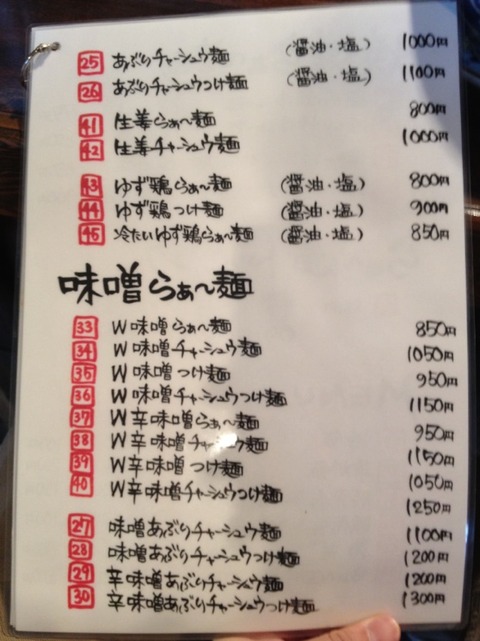 25 あぶりチャーシュウ麺 (醤油・塩) 1000円
26 あぶりチャーシュウつけ麺 (醤油・塩) 1100円
41 生姜らぁ〜麺 800円
42 生姜チャーシュウ麺 1000円
43 ゆず鶏らぁ〜麺 (醤油・塩) 800円
44 ゆず鶏つけ麺 (醤油・塩) 900円
45 冷たいゆず鶏らぁ〜麺 (醤油・塩) 850円
味噌らぁ〜麺
33 W味噌らぁ〜麺 850円
34 W味噌チャーシュウ麺 1050円
35 W味噌つけ麺 950円
36 W味噌チャーシュウつけ麺 1150円
37 W辛味噌らぁ〜麺 950円
38 W辛味噌チャーシュウ麺 1150円
39 W辛味噌つけ麺 1050円
40 W辛味噌チャーシュウつけ麺 1250円
27 味噌あぶりチャーシュウ麺 1100円
28 味噌あぶりチャーシュウつけ麺 1200円
29 辛味噌あぶりチャーシュウ麺 1200円
30 辛味噌あぶりチャーシュウつけ麺 1300円